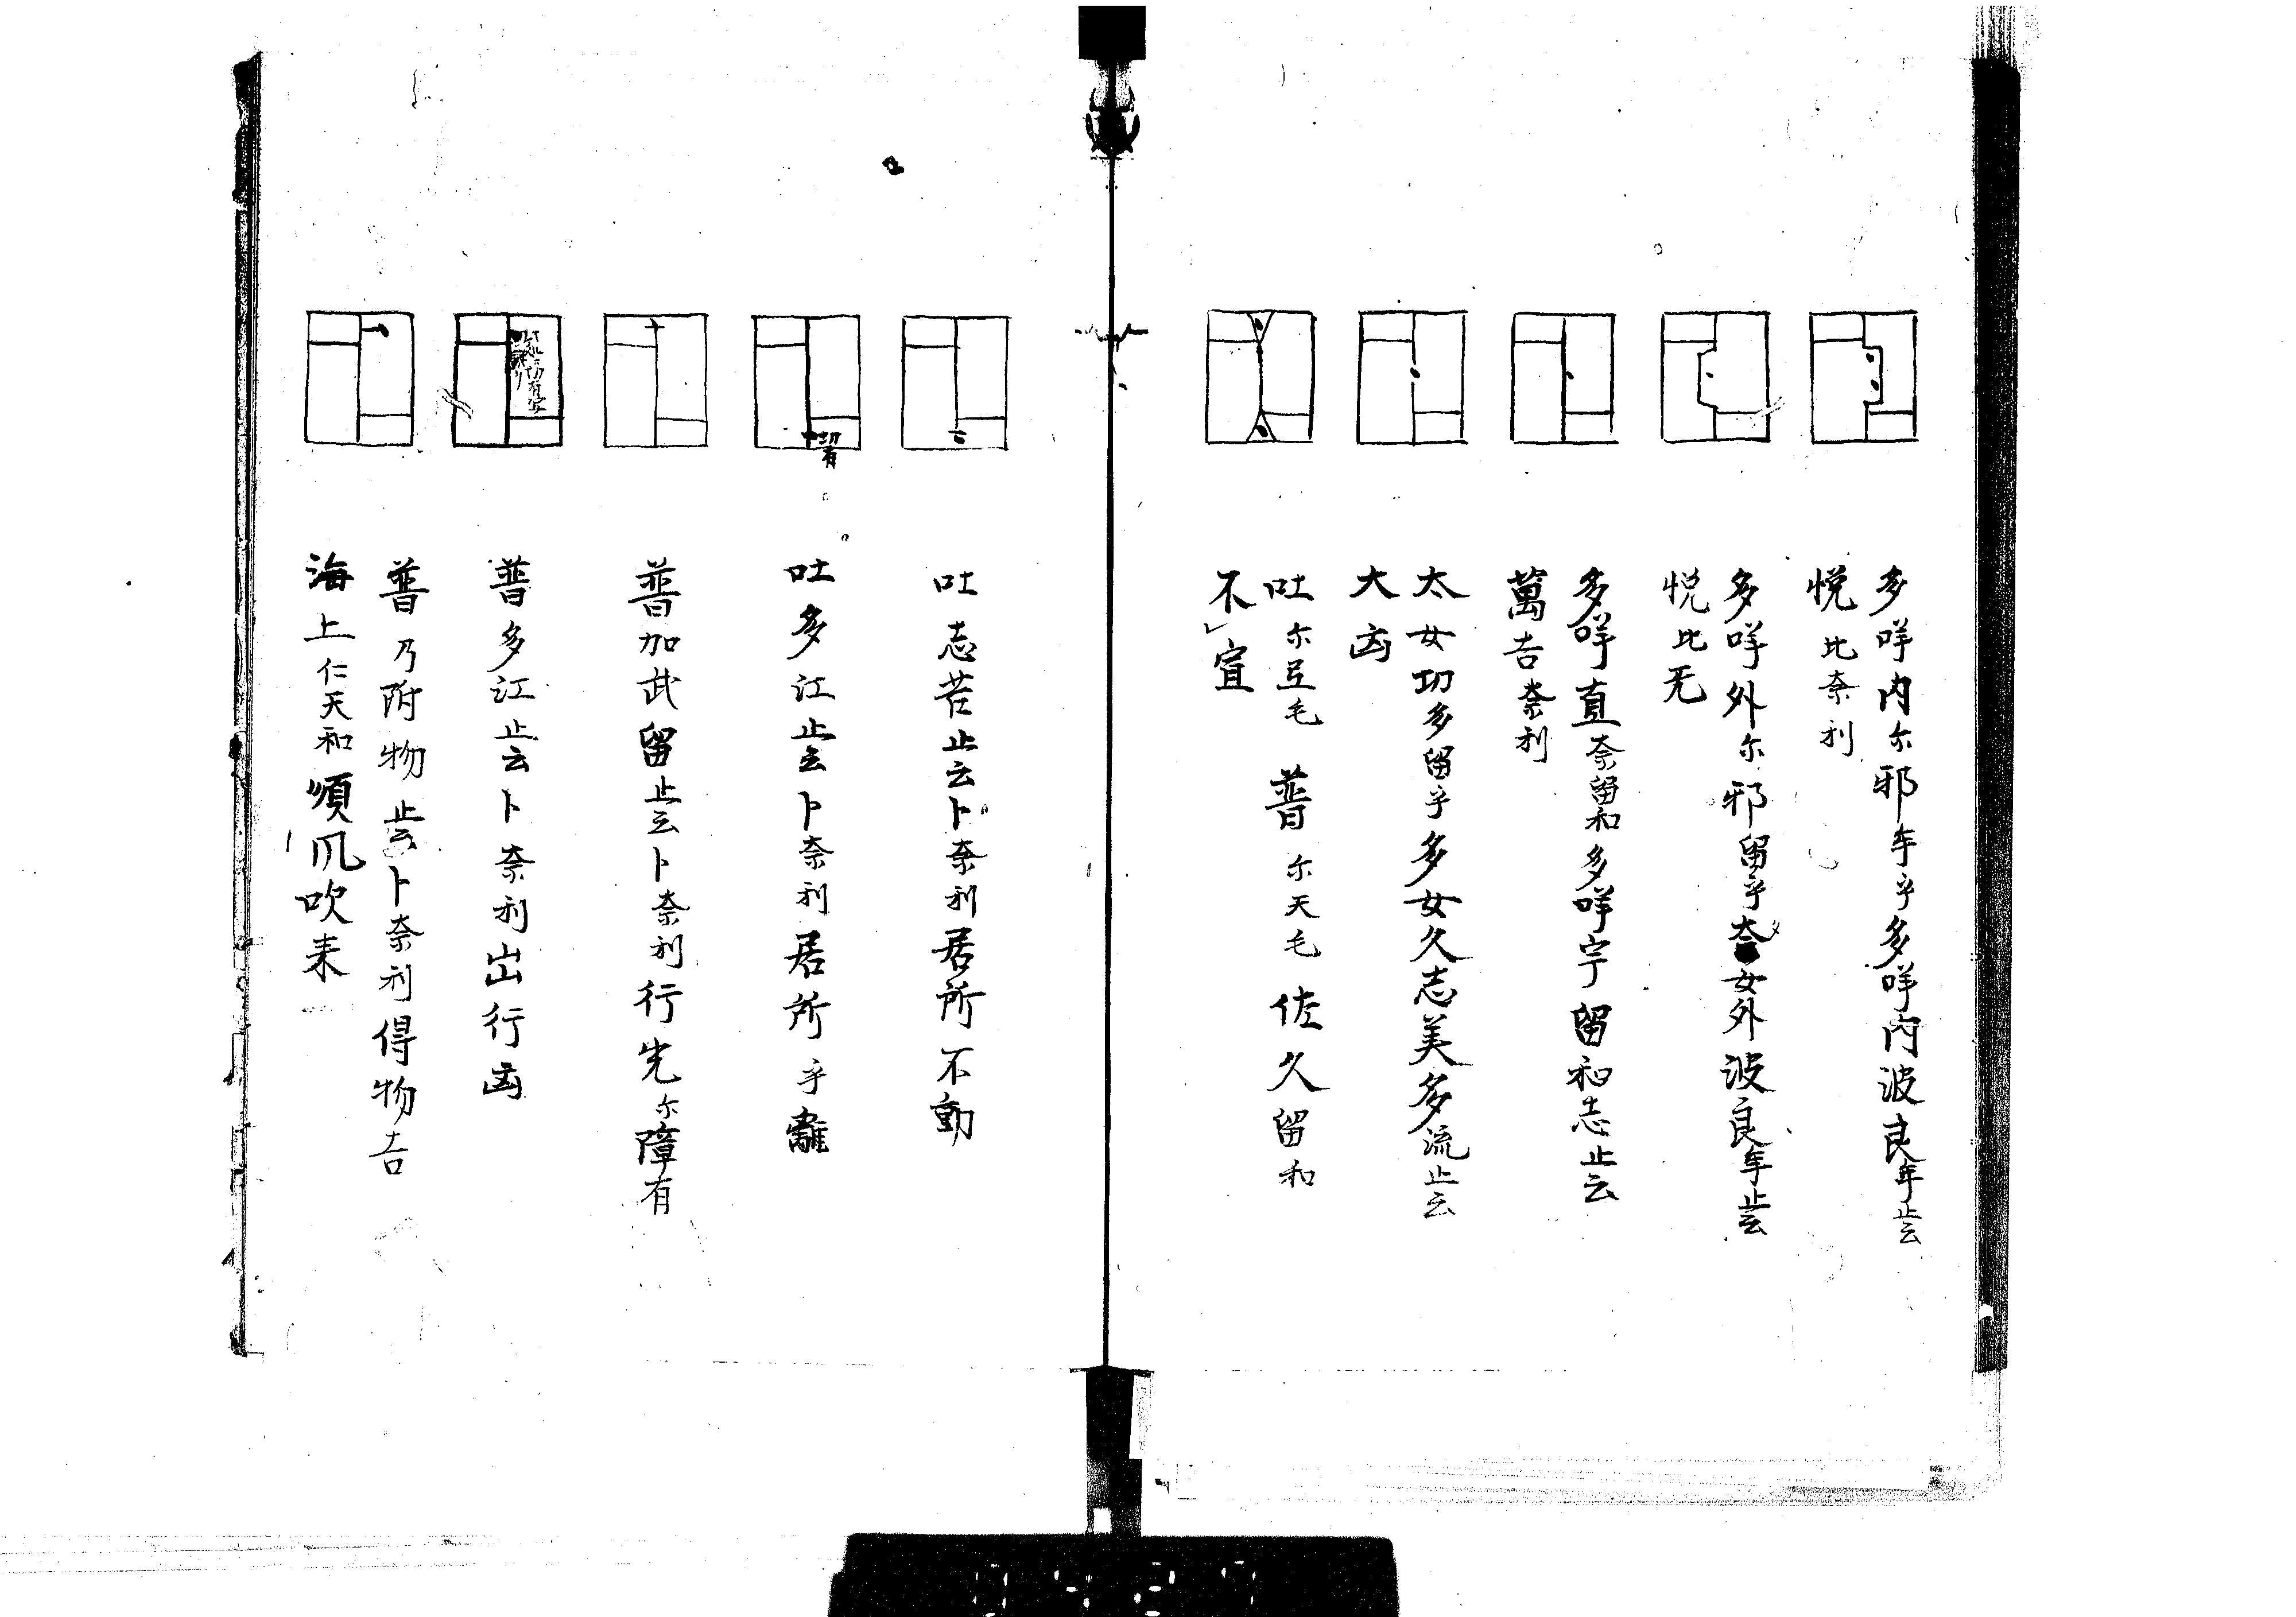 多咩内尓邪牟乎多咩内波良年止云
悦比奈利
多咩外尓邪留乎奈女外波良年止云
悦比无
多咩直奈留和多咩宁留和志止云
萬吉奈利
太女切多留乎多女久志美多流止云
大凶
吐尓豆毛 普尓天毛 佐久留和
不宜
吐志苦止云卜奈利居所不動
吐多江止云卜奈利居所乎離
切有
普加武留止云卜奈利行先尓障有
普多江止云卜奈利出行凶
普乃附物止云卜奈利得物吉
海上仁天和順風吹来